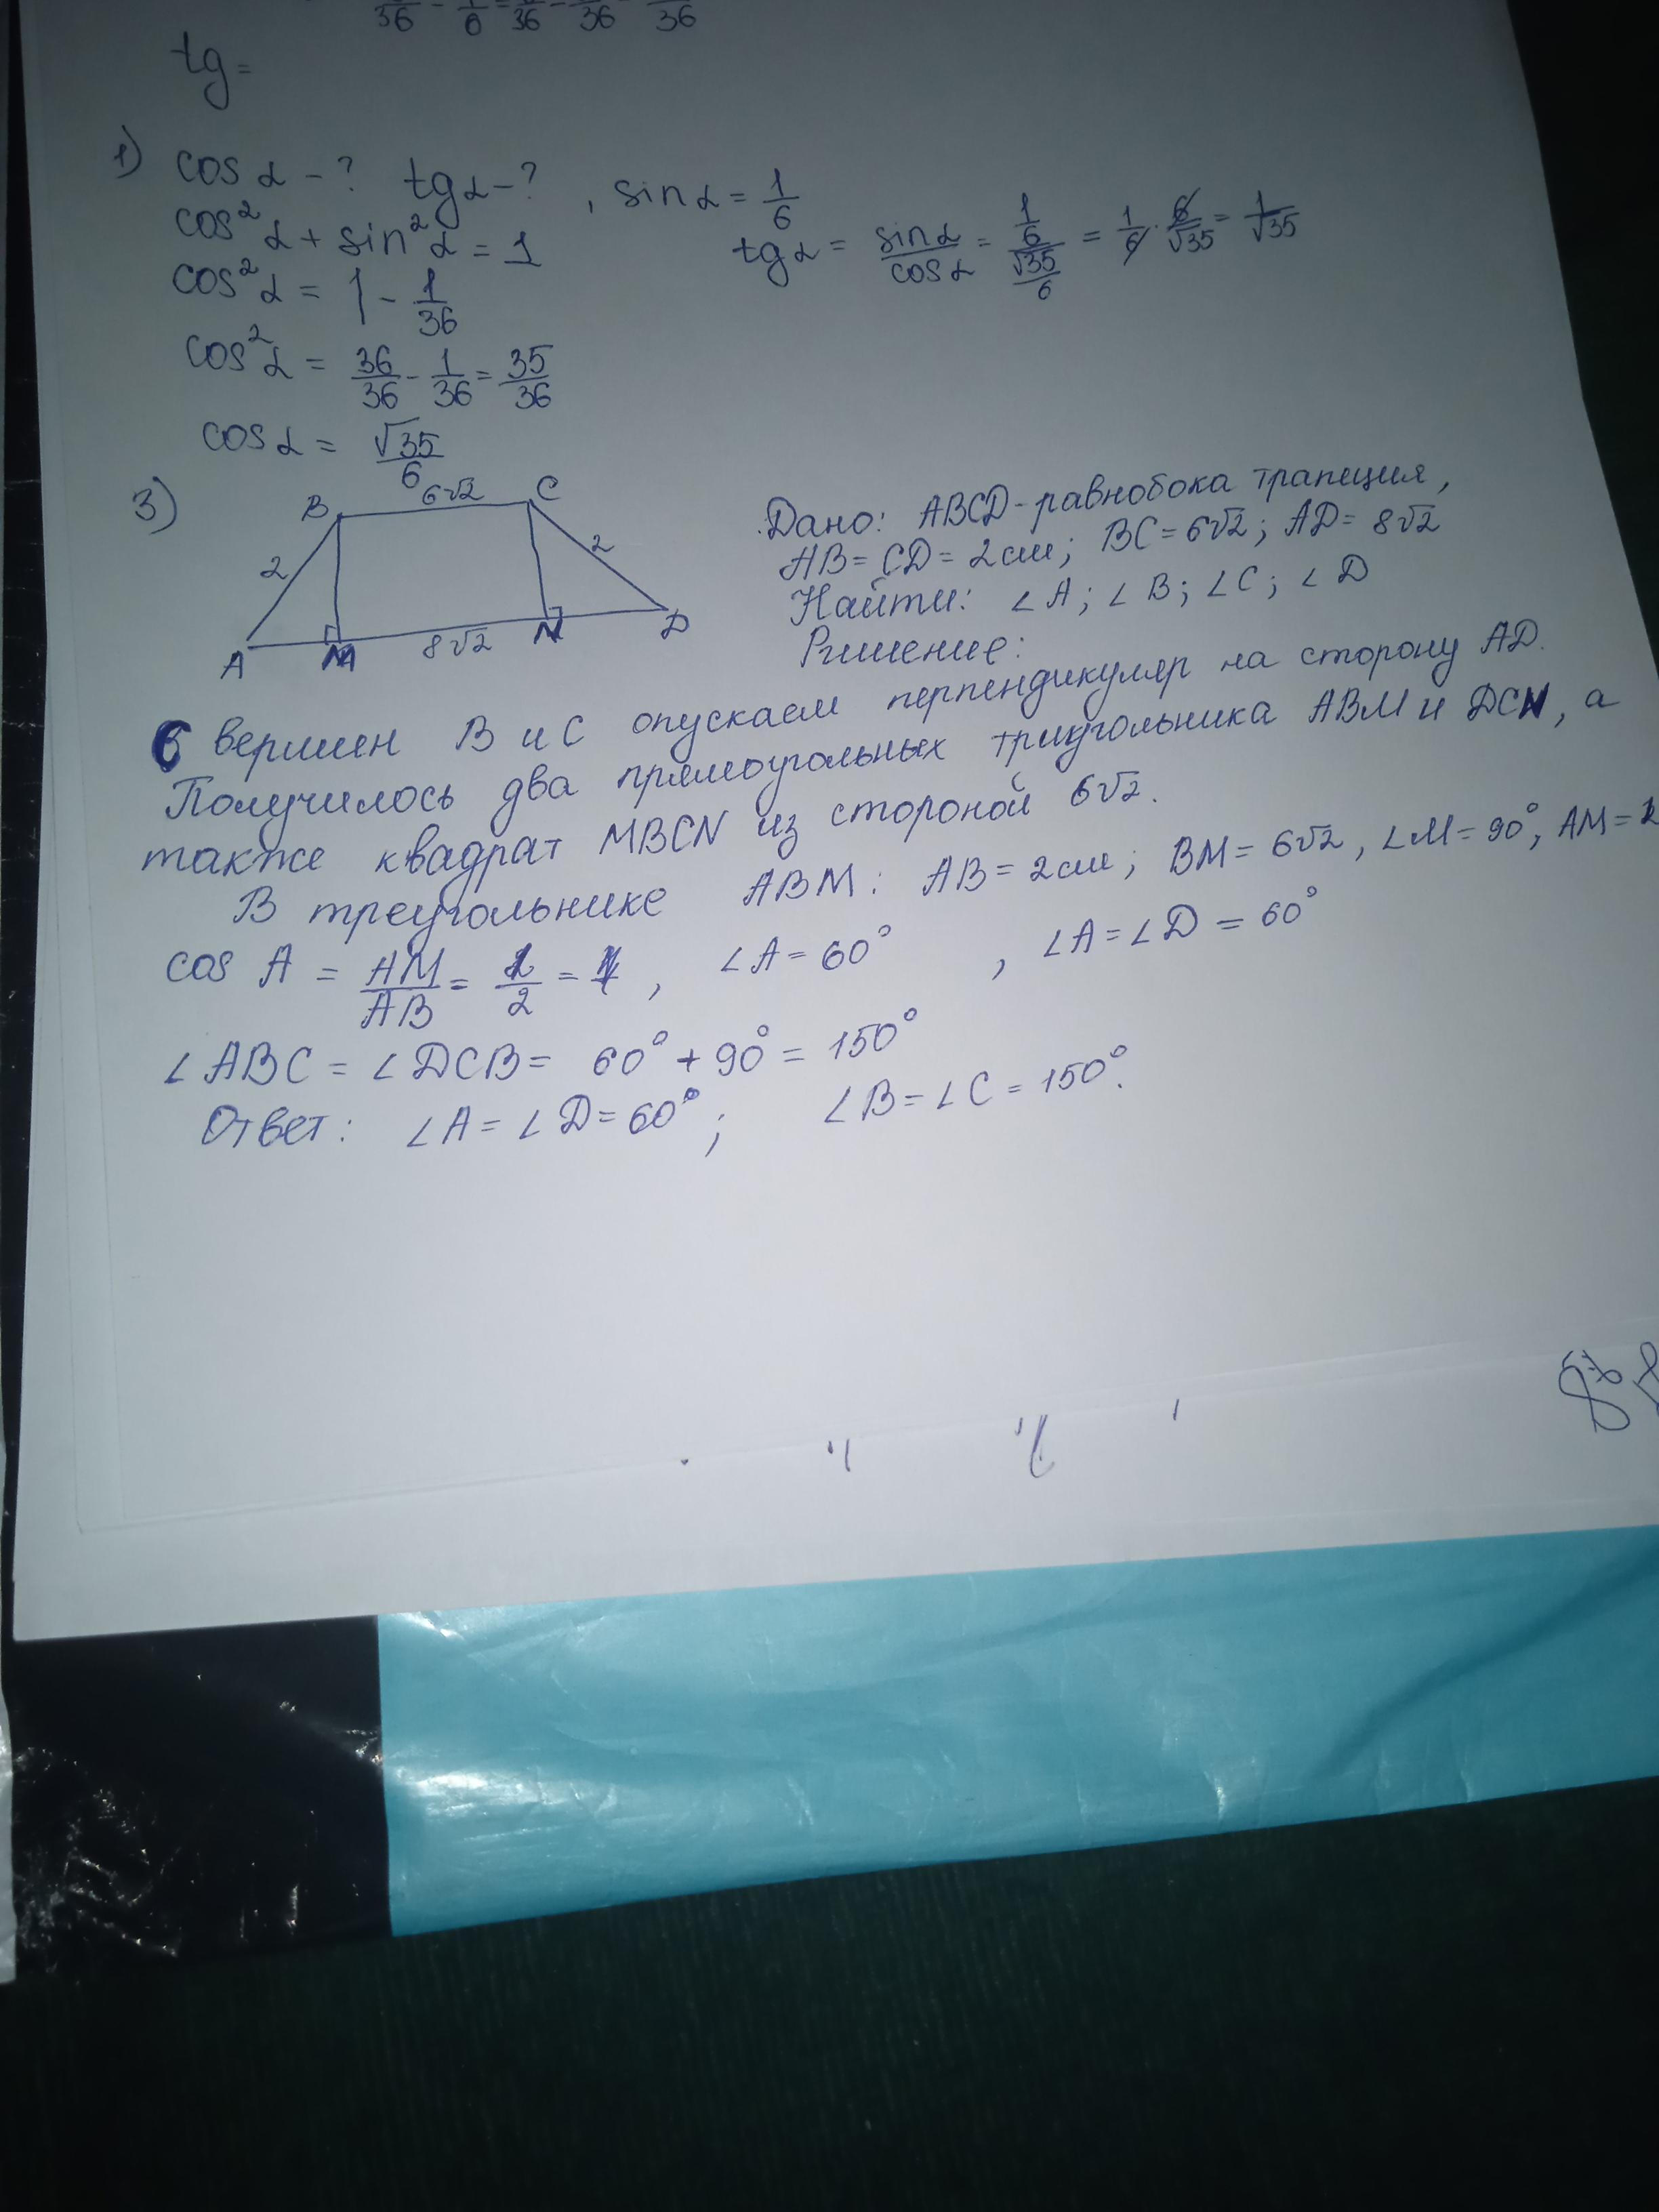 tg =
1) cos α - ? tg α - ? , sin α = 1/6
cos² α + sin² α = 1
cos² α = 1 - 1/36
cos² α = 36/36 - 1/36 = 35/36
cos α = √35/6
tg α = sin α/cos α = 1/6/√35/6 = 1/6 · 6/√35 = 1/√35
3)
B 6√2 C
2 2
A M 8√2 N D
Дано: ABCD - равнобока трапеция,
AB = CD = 2 см; BC = 6√2; AD = 8√2
Найти: ∠A; ∠B; ∠C; ∠D
Ришение:
С вершин B и C опускаем перпендикуляр на сторону AD.
Получилось два прямоугольных триугольника ABM и DCN, а
также квадрат MBCN из стороной 6√2.
В треугольнике ABM: AB = 2 см; BM = 6√2, ∠M = 90°, AM =
cos A = AM/AB = 1/2 = , ∠A = 60° , ∠A = ∠D = 60°
∠ABC = ∠DCB = 60° + 90° = 150°
Ответ: ∠A = ∠D = 60°; ∠B = ∠C = 150°.